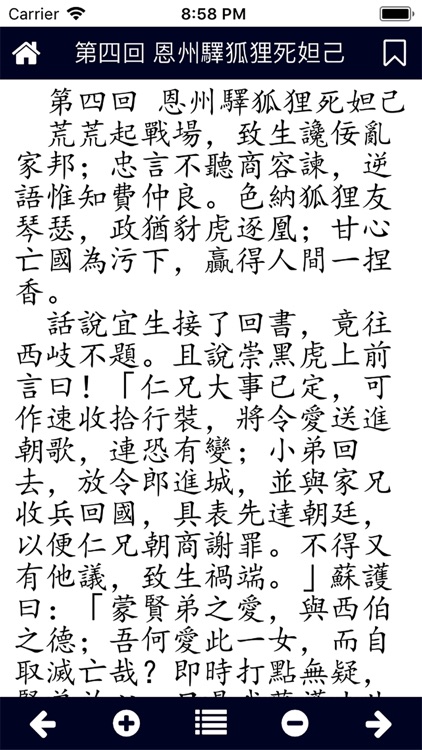 Carrier 8:58 PM
第四回 恩州驛狐狸死妲己
第四回 恩州驛狐狸死妲己
荒荒起戰場，致生讒佞亂
家邦；忠言不聽商容諫，逆
語惟知費仲良。色納狐狸友
琴瑟，政猶豺虎逐凰；甘心
亡國為污下，贏得人間一捏
香。
話說宜生接了回書，竟往
西岐不題。且說崇黑虎上前
言曰！「仁兄大事已定，可
作速收拾行裝，將令愛送進
朝歌，連恐有變；小弟回
去，放令郎進城，並與家兄
收兵回國，具表先達朝廷，
以便仁兄朝商謝罪。不得又
有他議，致生禍端。」蘇護
曰：「蒙賢弟之愛，與西伯
之德；吾何愛此一女，而自
取滅亡哉？即時打點無疑，